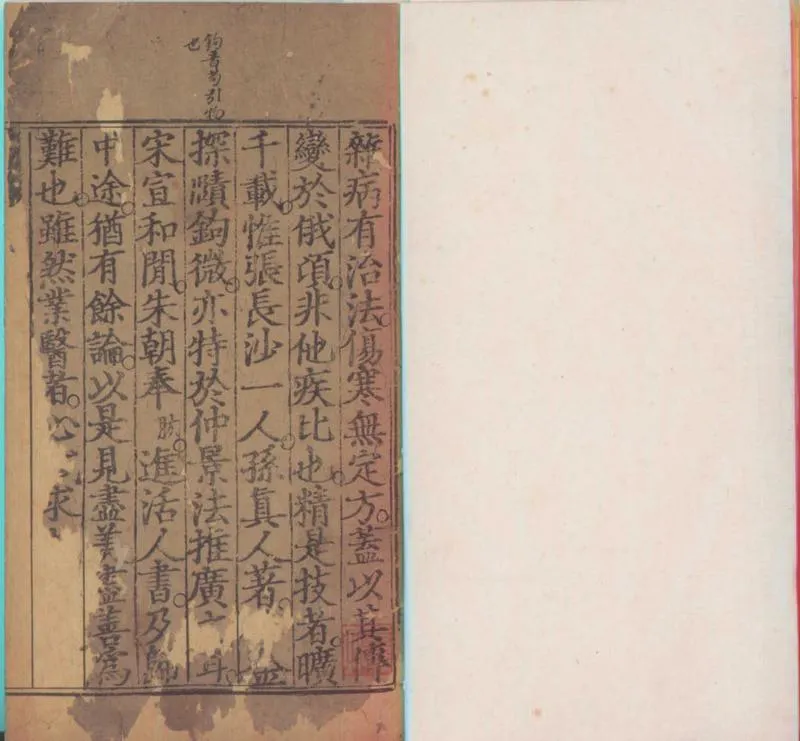 鈎音勾引物
也
雜病有治法傷寒無定方蓋以其傳
變於俄頃非他疾比也精是技者曠
千載惟張長沙一人孫真人著
探賾鈎微亦特於仲景法推廣耳
宋宣和間朱朝奉肱進活人書乃
中途猶有餘論以是見盡美盡善為
難也雖然業醫者必求